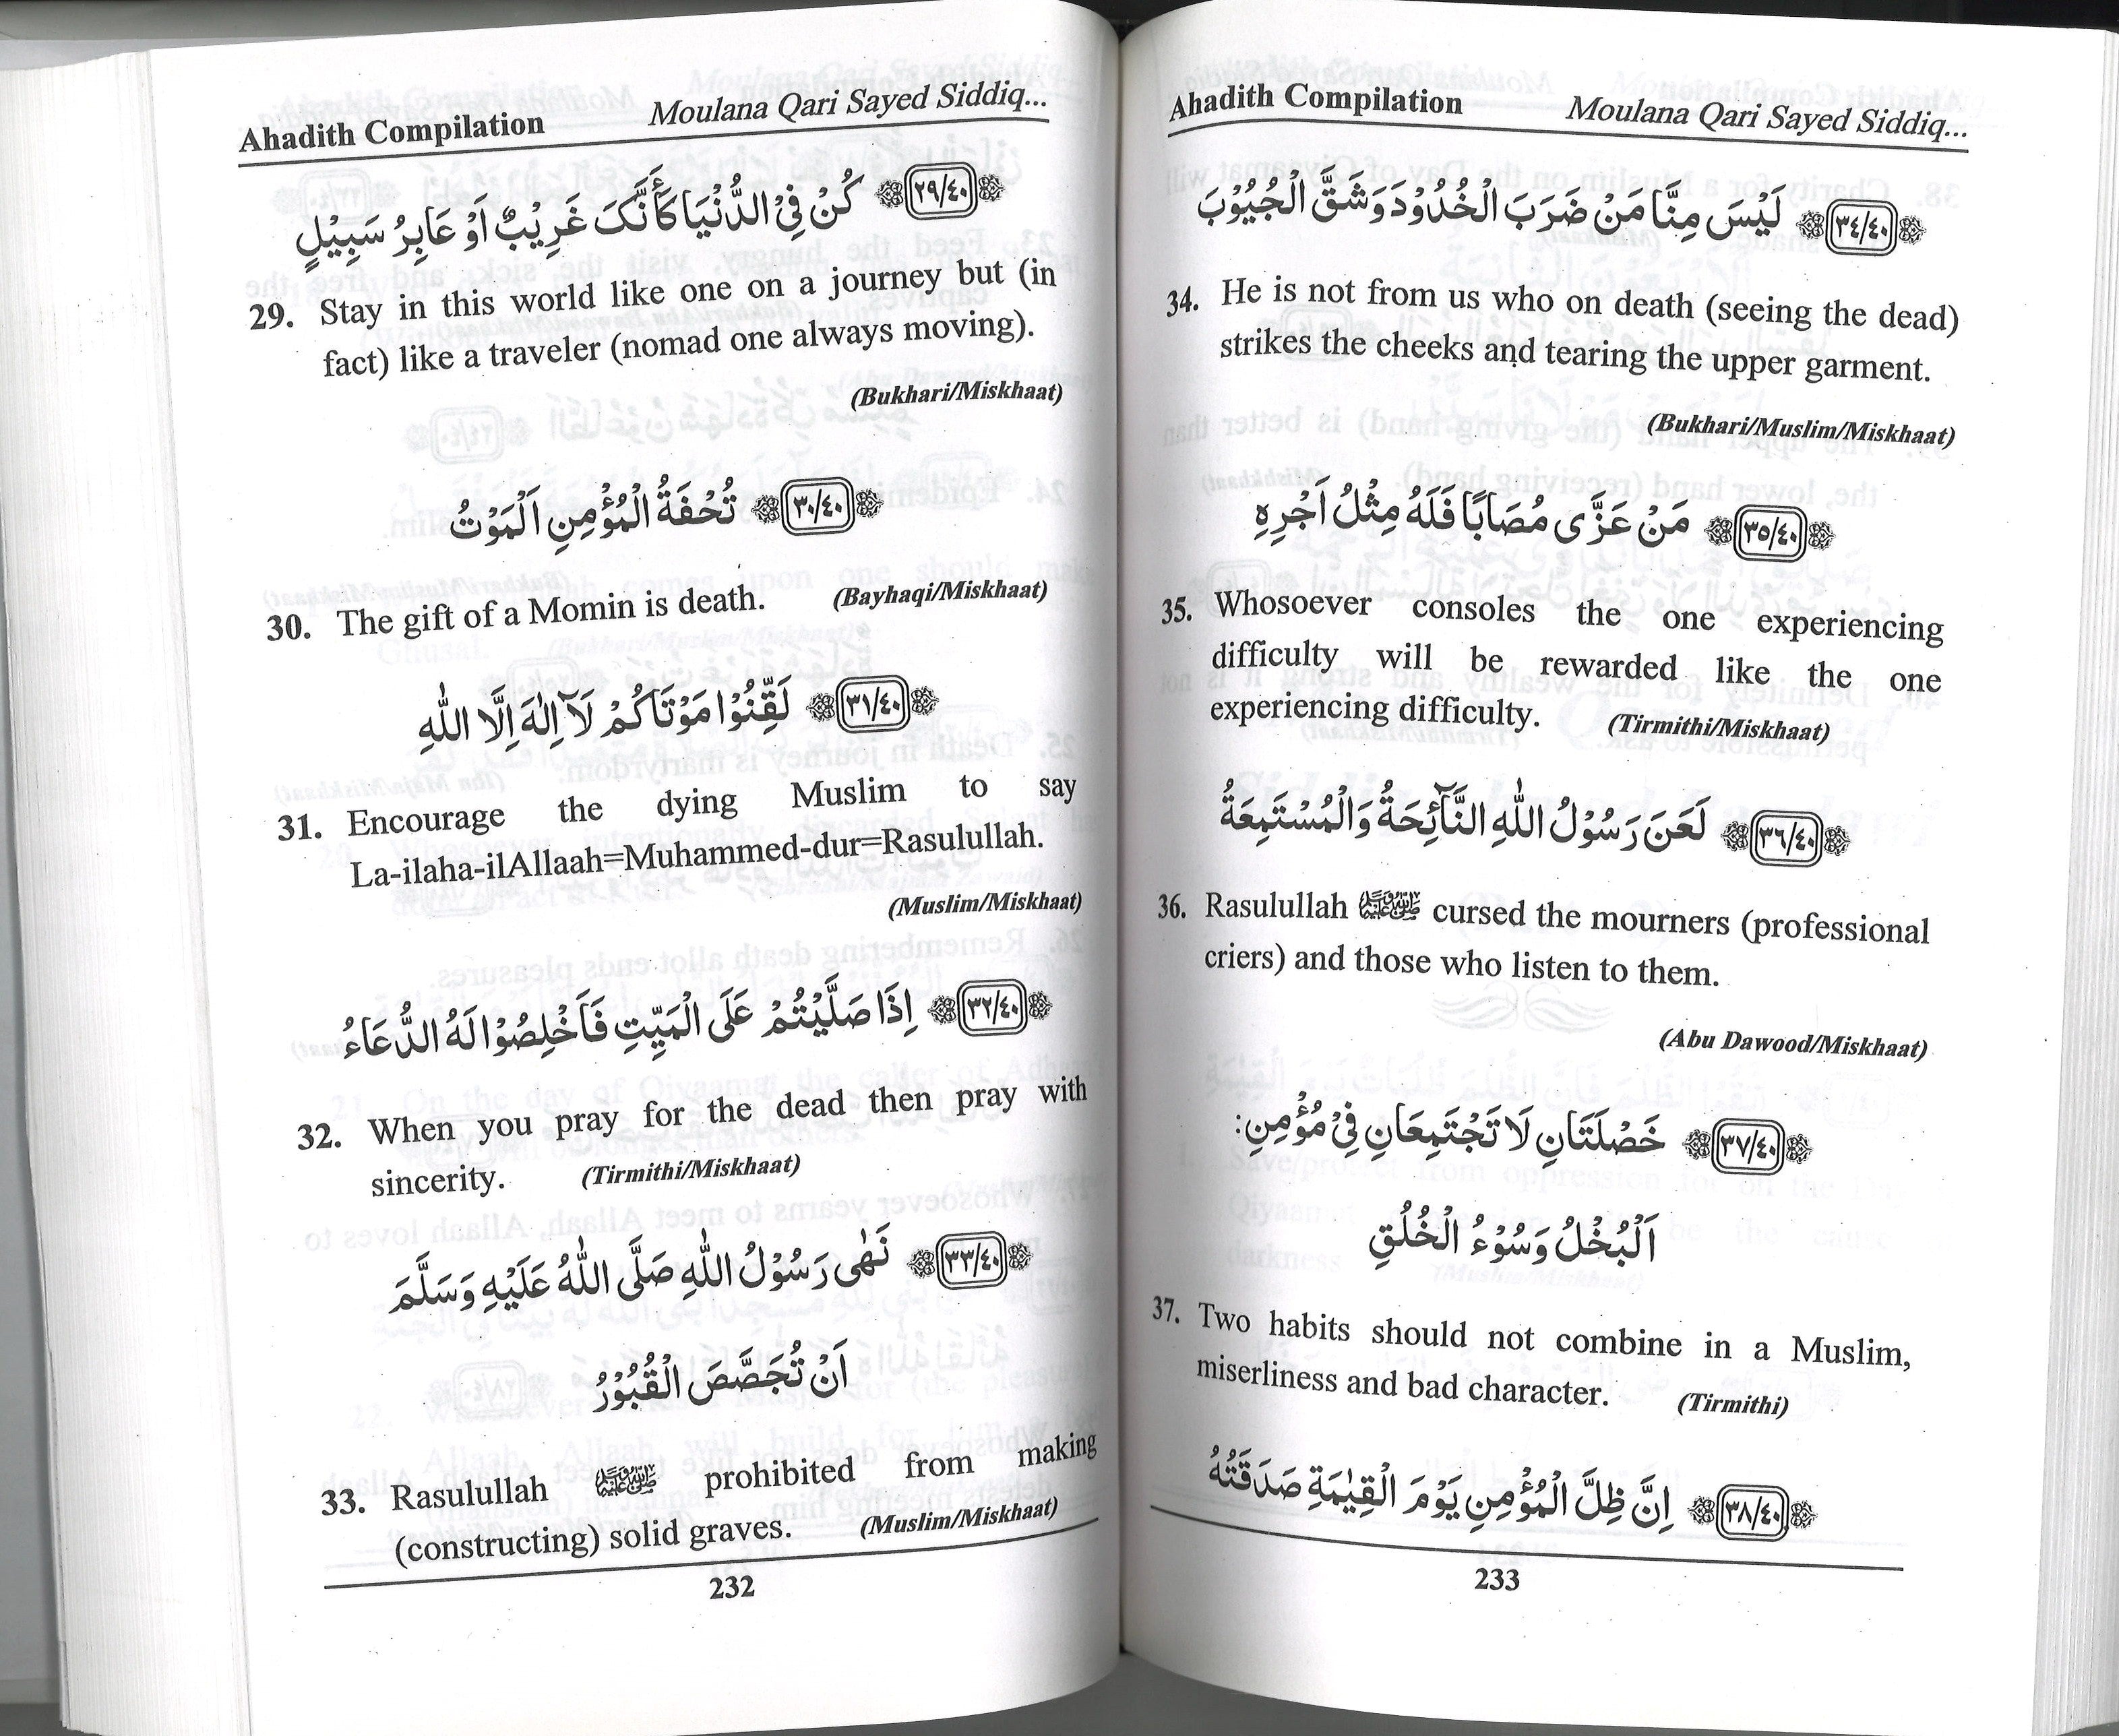 Ahadith Compilation Moulana Qari Sayed Siddiq...
٢٩/٤٠ كُنْ فِي الدُّنْيَا كَأَنَّكَ غَرِيْبٌ اَوْ عَابِرُ سَبِيْلٍ
29. Stay in this world like one on a journey but (in
fact) like a traveler (nomad one always moving).
(Bukhari/Miskhaat)
٣٠/٤٠ تُحْفَةُ الْمُؤْمِنِ اَلْمَوْتُ
30. The gift of a Momin is death. (Bayhaqi/Miskhaat)
٣١/٤٠ لَقِّنُوْا مَوْتَاكُمْ لَآ اِلٰهَ اِلَّا اللّٰهِ
31. Encourage the dying Muslim to say
La-ilaha-ilAllaah=Muhammed-dur=Rasulullah.
(Muslim/Miskhaat)
٣٢/٤٠ اِذَا صَلَّيْتُمْ عَلَى الْمَيِّتِ فَاَخْلِصُوْا لَهُ الدُّعَاءُ
32. When you pray for the dead then pray with
sincerity. (Tirmithi/Miskhaat)
٣٣/٤٠ نَهٰى رَسُوْلُ اللّٰهِ صَلَّى اللّٰهُ عَلَيْهِ وَسَلَّمَ
اَنْ تُجَصَّصَ الْقُبُوْرُ
33. Rasulullah ﷺ prohibited from making
(constructing) solid graves. (Muslim/Miskhaat)
232
Ahadith Compilation Moulana Qari Sayed Siddiq...
٣٤/٤٠ لَيْسَ مِنَّا مَنْ ضَرَبَ الْخُدُوْدَ وَشَقَّ الْجُيُوْبَ
34. He is not from us who on death (seeing the dead)
strikes the cheeks and tearing the upper garment.
(Bukhari/Muslim/Miskhaat)
٣٥/٤٠ مَنْ عَزَّى مُصَابًا فَلَهُ مِثْلُ اَجْرِهِ
35. Whosoever consoles the one experiencing
difficulty will be rewarded like the one
experiencing difficulty. (Tirmithi/Miskhaat)
٣٦/٤٠ لَعَنَ رَسُوْلُ اللّٰهِ النَّآئِحَةُ وَالْمُسْتَمِعَةُ
36. Rasulullah ﷺ cursed the mourners (professional
criers) and those who listen to them.
(Abu Dawood/Miskhaat)
٣٧/٤٠ خَصْلَتَانِ لَا تَجْتَمِعَانِ فِيْ مُؤْمِنٍ:
اَلْبُخْلُ وَسُوْءُ الْخُلُقِ
37. Two habits should not combine in a Muslim,
miserliness and bad character. (Tirmithi)
٣٨/٤٠ اِنَّ ظِلَّ الْمُؤْمِنِ يَوْمَ الْقِيٰمَةِ صَدَقَتُهُ
233